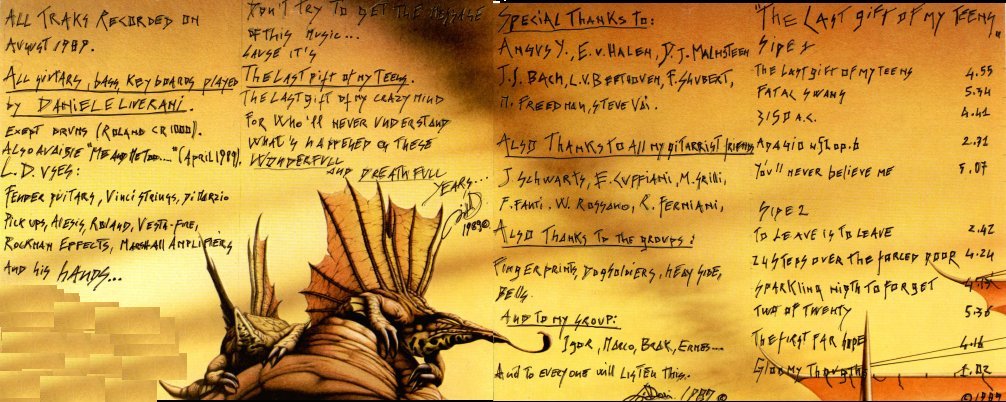 ALL TRAKS RECORDED ON
AUGUST 1989.
ALL GUITARS, BASS, KEYBOARDS PLAYED
by DANIELE LIVERANI.
EXEPT DRUMS (ROLAND CR 1000).
ALSO AVAIBLE "ME AND METOO...." (APRIL 1989).
L.D. USES:
FENDER GUITARS, VINCI STRINGS, DI MARZIO
PICK UPS, ALESIS, ROLAND, VESTA-FIRE,
ROCKMAN EFFECTS, MARSHALL AMPLIFIERS
AND HIS HANDS...
DON'T TRY TO GET THE MESSAGE
OF THIS MUSIC...
CAUSE IT'S
THE LAST GIFT OF MY TEENS.
THE LAST GIFT OF MY CRAZY MIND
FOR WHO'LL NEVER UNDERSTAND
WHAT'S HAPPENED ON THESE
WONDERFULL
AND BREATHFULL
YEARS...
1989©
SPECIAL THANKS TO:
ANGUS Y., E.V. HALEN, D.J. MALMSTEEN
J.S. BACH, L.V. BEETHOVEN, F. SHUBERT,
M. FREEDMAN, STEVE VAI.
ALSO THANKS TO ALL MY GITARRIST FRIENDS
J. SCHWARTS, E. CUFFIANI, M. GRILLI,
F. FANTI. W. ROSSANO, R. FERMIANI,
ALSO THANKS TO THE GROUPS:
FINGERPRINTS, DOGSOLDIERS, HEAVY SIDE,
BELLS.
AND TO MY GROUP:
IGOR, MARCO, BEAK, ERMES...
AND TO EVERYONE WILL LISTEN THIS.
1989
"THE LAST GIFT OF MY TEENS"
SIDE 1
THE LAST GIFT OF MY TEENS 4.55
FATAL SWANS 5.34
3150 A.C. 4.41
ADAGIO 2.31
YOU'LL NEVER BELIEVE ME 5.07
SIDE 2
TO LEAVE IS TO LEAVE 2.42
24 STEPS OVER THE FORCED DOOR 4.24
SPARKLING NIGTH TO FORGET
TWO OF TWENTY 5.36
THE FIRST FAR HOPE 4.16
GLOOMY THOUGTHS 1.02
©1989